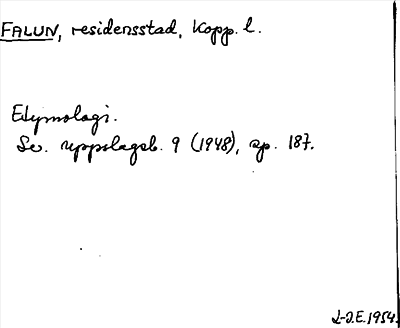 FALUN, residensstad, Kopp. l.
Etymologi.
Sv. uppslagsb. 9 (1948), sp. 187.
L-J.E. 1954.